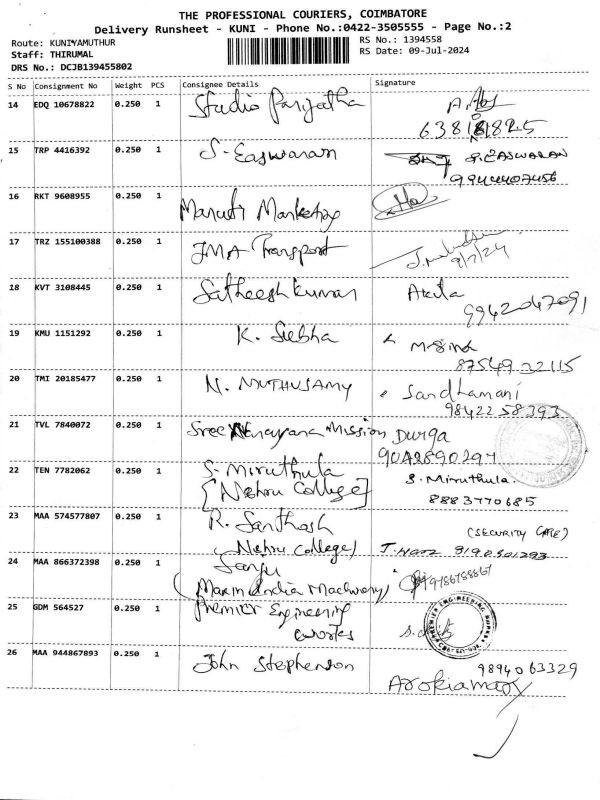 THE PROFESSIONAL COURIERS, COIMBATORE
Delivery Runsheet - KUNI - Phone No.:0422-3505555 - Page No.:2
Route: KUNIYAMUTHUR
RS No.: 1394558
Staff: THIRUMAL
RS Date: 09-Jul-2024
DRS No.: DCJB139455802
S No Consignment No Weight PCS Consignee Details Signature
14 EDQ 10678822 0.250 1 Studio Parijatha
15 TRP 4416392 0.250 1 S-Easwaran S.EASWARAN
9944407456
16 RKT 9608955 0.250 1 Maruti Marketing
17 TRZ 155100388 0.250 1 JMA Transport
9/7/24
18 KVT 3108445 0.250 1 Satheeshkumar Akila
9942047091
19 KMU 1151292 0.250 1 K. Subha
87549 32115
20 TMI 20185477 0.250 1 N. MUTHUSAMY Sandhamani
98422 58393
21 TVL 7840072 0.250 1 Sree Narayana Mission Durga
22 TEN 7782062 0.250 1 S-Miruthula S. Miruthula.
[Nehru College] 8883770685
23 MAA 574577807 0.250 1 R. Santhosh (SECURITY GATE)
(Nehru College)
24 MAA 866372398 0.250 1 Sanju
25 GDM 564527 0.250 1 Premier Engineering
Works
26 MAA 944867893 0.250 1 John Stephenson 98940 63329
Arokiamary